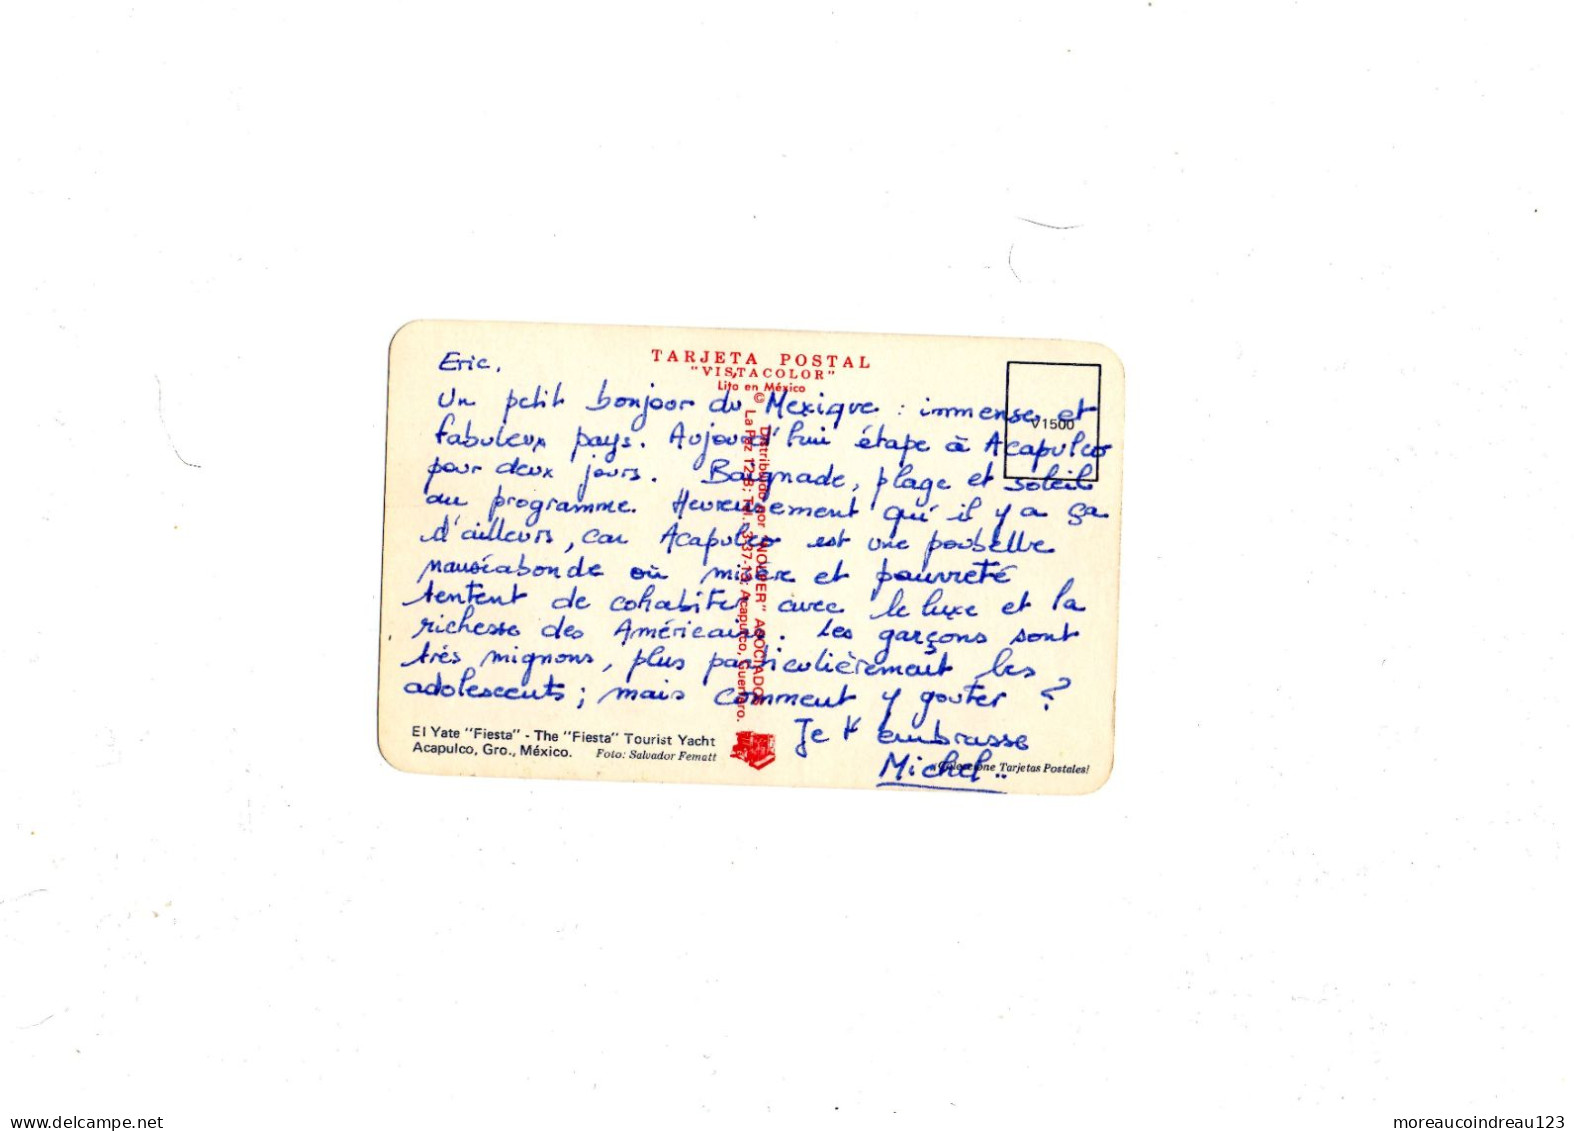 TARJETA POSTAL
"VISTACOLOR"
Lito en México
V1500
Eric,
Un petit bonjour du Mexique : immense et
fabuleux pays. Aujourd'hui étape à Acapulco
pour deux jours. Baignade, plage et soleil
au programme. Heureusement qu'il y a ça
d'ailleurs, car Acapulco est une poubelle
nauséabonde où misère et pauvreté
tentent de cohabiter avec le luxe et la
richesse des Américains. Les garçons sont
très mignons, plus particulièrement les
adolescents ; mais comment y gouter ?
Je t'embrasse
Michel..
© Distribuido por "NOLVER" ASOCIADOS
La Paz 12-B; Tel. Acapulco, Guerrero.
El Yate "Fiesta" - The "Fiesta" Tourist Yacht
Acapulco, Gro., México. Foto: Salvador Fematt
¡Coleccione Tarjetas Postales!
delcampe.net
moreaucoindreau123